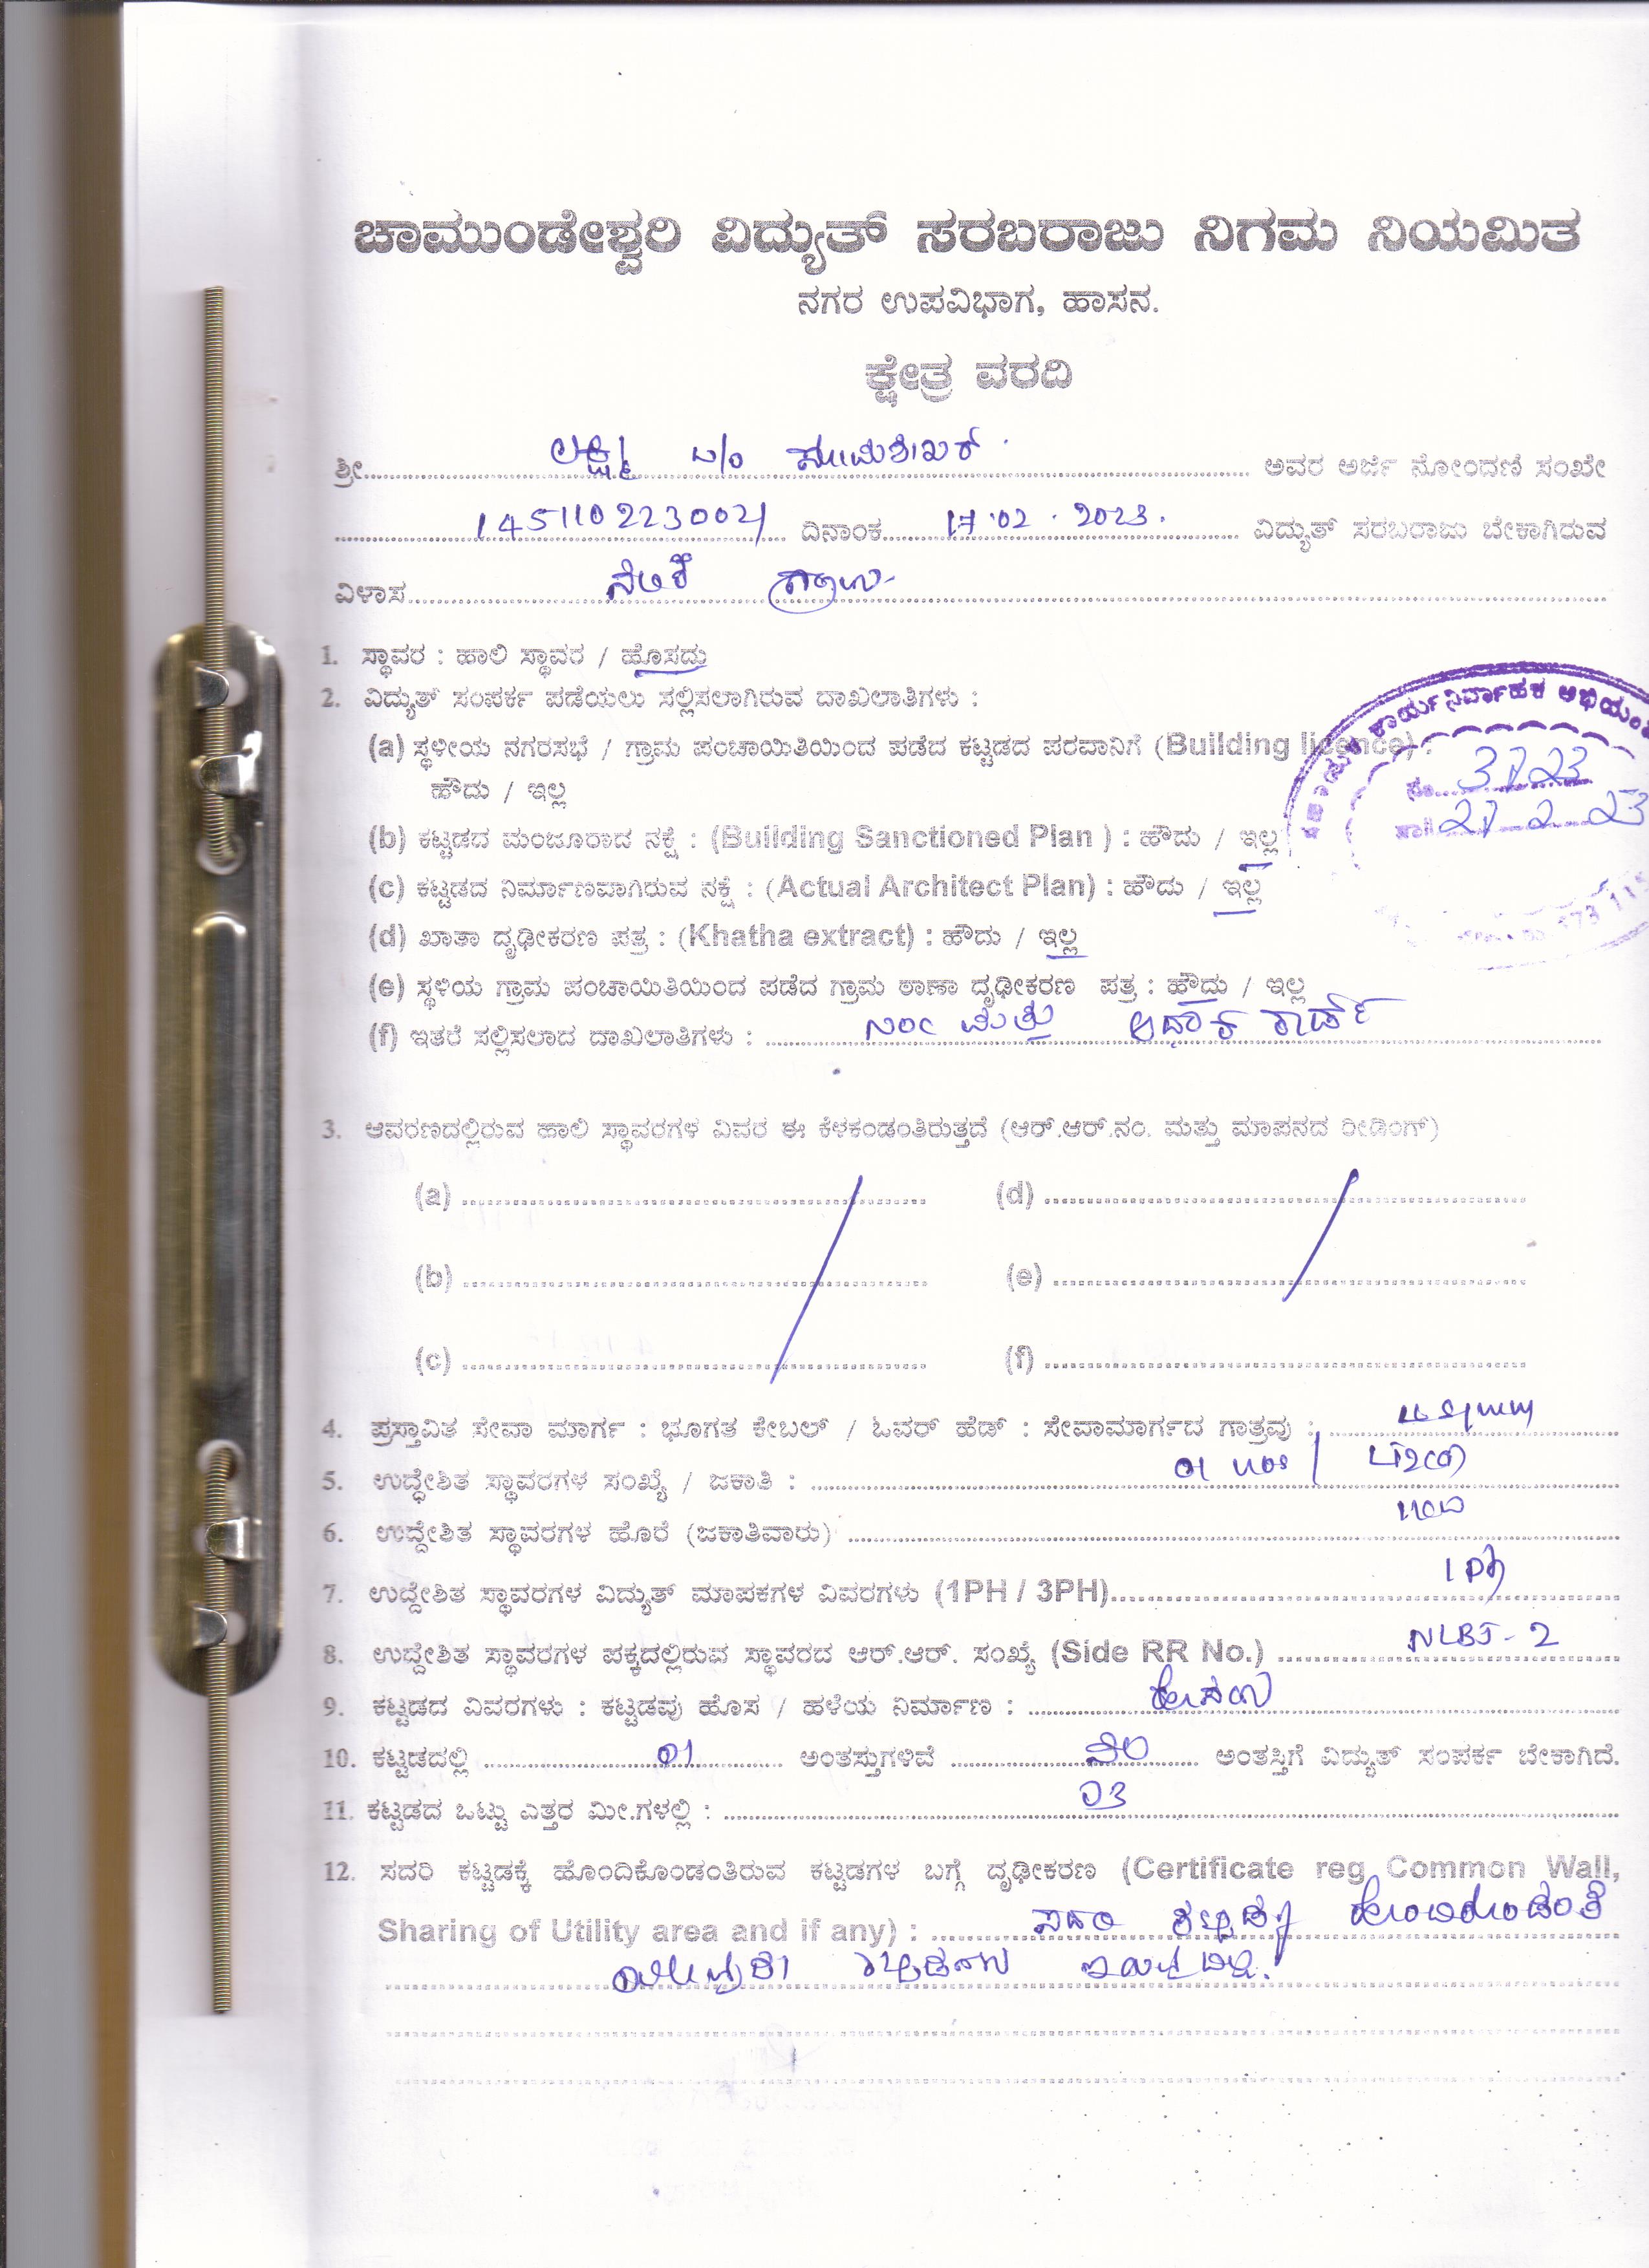 ಚಾಮುಂಡೇಶ್ವರಿ ವಿದ್ಯುತ್ ಸರಬರಾಜು ನಿಗಮ ನಿಯಮಿತ
ನಗರ ಉಪವಿಭಾಗ, ಹಾಸನ.
ಕ್ಷೇತ್ರ ವರದಿ
ಶ್ರೀ ಲಕ್ಷ್ಮಿ ಅವರ ಅರ್ಜಿ ನೋಂದಣಿ ಸಂಖೇ
1451102230021 ದಿನಾಂಕ 17.02.2023. ವಿದ್ಯುತ್ ಸರಬರಾಜು ಬೇಕಾಗಿರುವ
ವಿಳಾಸ
1. ಸ್ಥಾವರ : ಹಾಲಿ ಸ್ಥಾವರ / ಹೊಸದು
2. ವಿದ್ಯುತ್ ಸಂಪರ್ಕ ಪಡೆಯಲು ಸಲ್ಲಿಸಲಾಗಿರುವ ದಾಖಲಾತಿಗಳು :
(a) ಸ್ಥಳೀಯ ನಗರಸಭೆ / ಗ್ರಾಮ ಪಂಚಾಯಿತಿಯಿಂದ ಪಡೆದ ಕಟ್ಟಡದ ಪರವಾನಿಗೆ (Building licence) :
ಹೌದು / ಇಲ್ಲ
(b) ಕಟ್ಟಡದ ಮಂಜೂರಾದ ನಕ್ಷೆ : (Building Sanctioned Plan ) : ಹೌದು / ಇಲ್ಲ
(c) ಕಟ್ಟಡದ ನಿರ್ಮಾಣವಾಗಿರುವ ನಕ್ಷೆ : (Actual Architect Plan) : ಹೌದು / ಇಲ್ಲ
(d) ಖಾತಾ ದೃಢೀಕರಣ ಪತ್ರ : (Khatha extract) : ಹೌದು / ಇಲ್ಲ
(e) ಸ್ಥಳಿಯ ಗ್ರಾಮ ಪಂಚಾಯಿತಿಯಿಂದ ಪಡೆದ ಗ್ರಾಮ ಠಾಣಾ ದೃಢೀಕರಣ ಪತ್ರ : ಹೌದು / ಇಲ್ಲ
(f) ಇತರೆ ಸಲ್ಲಿಸಲಾದ ದಾಖಲಾತಿಗಳು : ಮತ್ತು ಆಧಾರ್ ಕಾರ್ಡ್
ಕಾರ್ಯನಿರ್ವಾಹಕ
3723
21 2 23
3. ಆವರಣದಲ್ಲಿರುವ ಹಾಲಿ ಸ್ಥಾವರಗಳ ವಿವರ ಈ ಕೆಳಕಂಡಂತಿರುತ್ತದೆ (ಆರ್.ಆರ್.ನಂ. ಮತ್ತು ಮಾಪನದ ರೀಡಿಂಗ್)
(a) (d)
(b) (e)
(c) (f)
4. ಪ್ರಸ್ತಾವಿತ ಸೇವಾ ಮಾರ್ಗ : ಭೂಗತ ಕೇಬಲ್ / ಓವರ್ ಹೆಡ್ : ಸೇವಾಮಾರ್ಗದ ಗಾತ್ರವು :
5. ಉದ್ಧೇಶಿತ ಸ್ಥಾವರಗಳ ಸಂಖ್ಯೆ / ಜಕಾತಿ : 01
6. ಉದ್ದೇಶಿತ ಸ್ಥಾವರಗಳ ಹೊರೆ (ಜಕಾತಿವಾರು)
7. ಉದ್ದೇಶಿತ ಸ್ಥಾವರಗಳ ವಿದ್ಯುತ್ ಮಾಪಕಗಳ ವಿವರಗಳು (1PH / 3PH) 1Ph
8. ಉದ್ದೇಶಿತ ಸ್ಥಾವರಗಳ ಪಕ್ಕದಲ್ಲಿರುವ ಸ್ಥಾವರದ ಆರ್.ಆರ್. ಸಂಖ್ಯೆ (Side RR No.) NLBJ-2
9. ಕಟ್ಟಡದ ವಿವರಗಳು : ಕಟ್ಟಡವು ಹೊಸ / ಹಳೆಯ ನಿರ್ಮಾಣ : ಹೊಸದು
10. ಕಟ್ಟಡದಲ್ಲಿ 01 ಅಂತಸ್ತುಗಳಿವೆ ನೆಲ ಅಂತಸ್ತಿಗೆ ವಿದ್ಯುತ್ ಸಂಪರ್ಕ ಬೇಕಾಗಿದೆ.
11. ಕಟ್ಟಡದ ಒಟ್ಟು ಎತ್ತರ ಮೀ.ಗಳಲ್ಲಿ : 03
12. ಸದರಿ ಕಟ್ಟಡಕ್ಕೆ ಹೊಂದಿಕೊಂಡಂತಿರುವ ಕಟ್ಟಡಗಳ ಬಗ್ಗೆ ದೃಢೀಕರಣ (Certificate reg Common Wall,
Sharing of Utility area and if any) : ಸದರಿ ಕಟ್ಟಡಕ್ಕೆ ಹೊಂದಿಕೊಂಡಂತೆ
ಯಾವುದೇ ಕಟ್ಟಡವು ಇರುವುದಿಲ್ಲ.